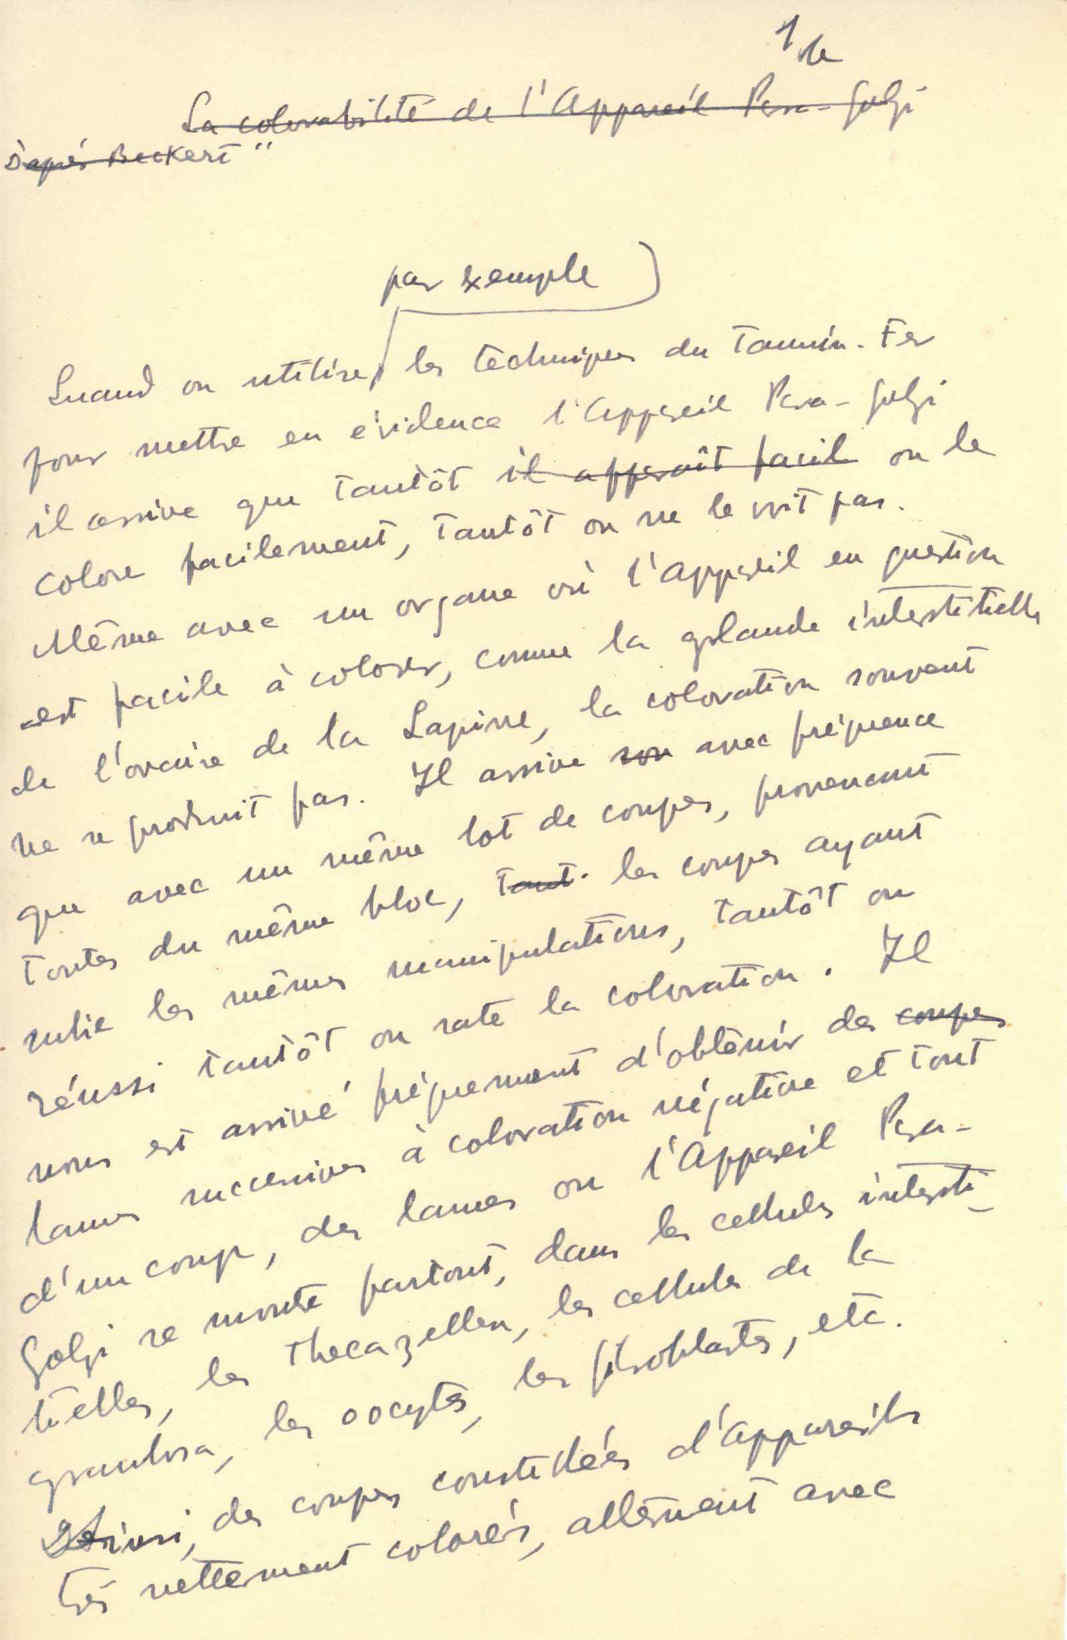 1 bis
La colorabilité de l'Appareil Para-Golgi
D'après Beckert"
par exemple
Quand on utilise les techniques du Tannin-Fer
pour mettre en évidence l'Appareil Para-Golgi
il arrive que tantôt il apparaît facil on le
colore facilement, tantôt on ne le voit pas.
Même avec un organe où l'Appareil en question
est facile à colorer, comme la glande interstitielle
de l'ovaire de la Lapine, la coloration souvent
ne se produit pas. Il arrive son avec fréquence
que avec un même lot de coupes, provenant
toutes du même bloc, tant. les coupes ayant
subie les mêmes manipulations, tantôt on
réussi tantôt on rate la coloration. Il
nous est arrivé fréquement d'obtenir des coupes
lames successives à coloration négative et tout
d'un coup, des lames ou l'Appareil Para-
Golgi se montre partout, dans les cellules intersti-
tielles, les Thecazellen, les cellules de la
granulosa, les oocytes, les fibroblastes, etc.
Ainsi, des coupes constellées d'appareils
très nettement colorés, alternent avec